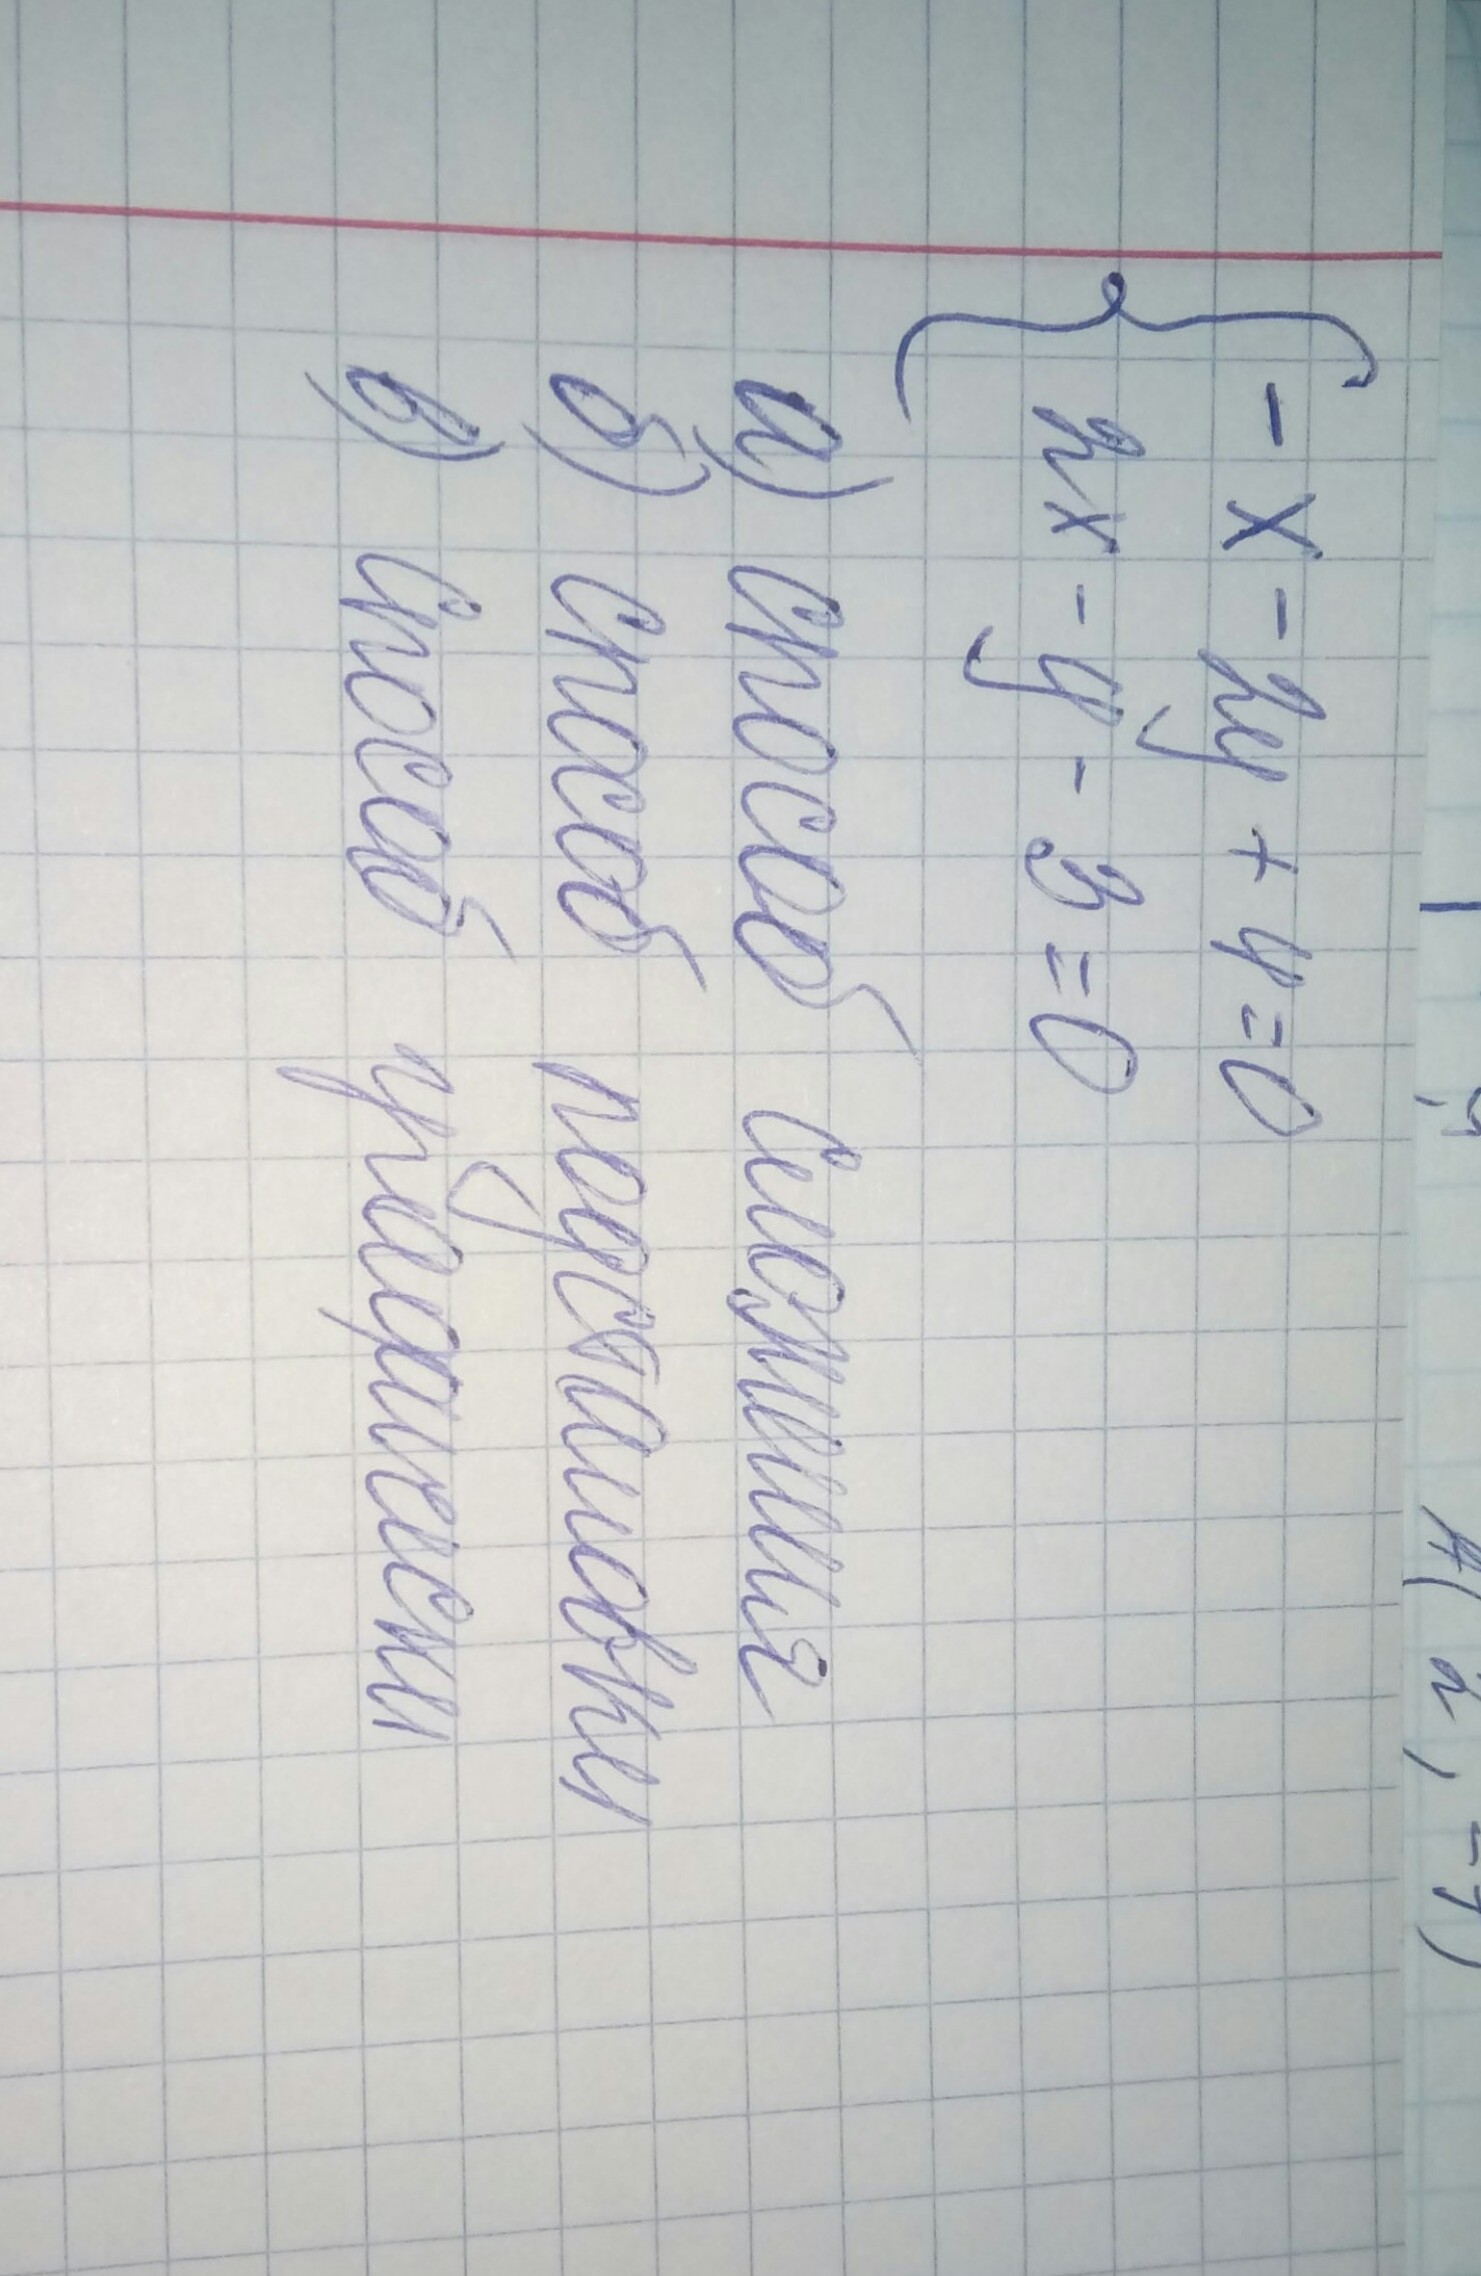 A( 2, -7)
- x - 2y + 4 = 0
2x - y - 3 = 0
а) Способ сложения
б) Способ подстановки
в) Способ графически